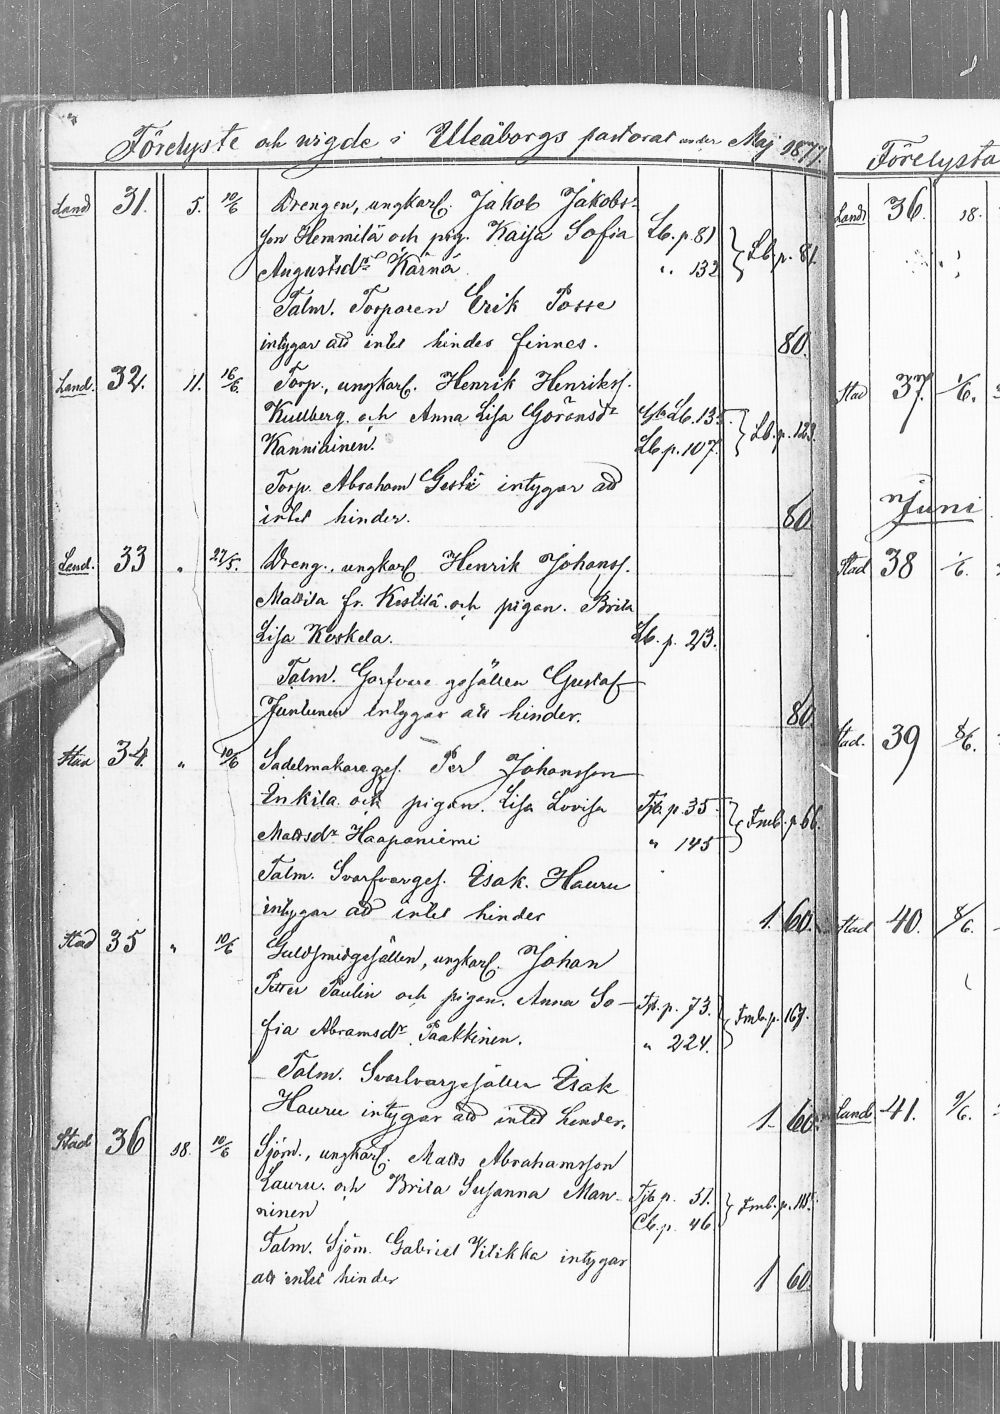 Förelyste och wigde i Uleåborgs pastorat under Maj 1877.
Land 31. 5. 10/6 Drengen, ungkarl. Jakob Jakobs-
son Hemmilä och pig. Kaisa Sofia Lb. p. 81 Lb. p. 81.
Augustsdr Kärnä " 132
Talm. Torparen Erik Posse
intygar att intet hinder finnes. 80.
Land. 32. 11. 16/6. Torp., ungkarl. Henrik Henrikss.
Kullberg och Anna Lisa Göransdr Lb. 135. Lb. p. 123.
Kanniainen. Lb. p. 107.
Torp. Abraham Gestä intygar att
intet hinder. 80
Land. 33 " 27/5. Dreng., ungkarl Henrik Johanss.
Mattila fr. Kestilä och pigan. Brita
Lisa Keskela. Lb. p. 213.
Talm. Garfvare gesällen Gustaf
Juntunen intygar att hinder. 80.
Stad 34. " 10/6 Sadelmakareges. Per Johansson
Inkila och pigan. Lisa Lovisa Tjb. p. 35 Fmb. p. 66.
Mattsdr Haapaniemi " 145
Talm. Svarfvarges. Isak. Hauru
intygar att intet hinder 1. 60.
Stad 35 " 10/6 Guldsmidgesällen, ungkarl. Johan
Petter Paulin och pigan. Anna So- Tjb. p. 73. Fmb. p. 167.
fia Abramsdr Paakkinen. " 224.
Talm. Svarfvargesällen Isak
Hauru intygar att intet hinder. 1. 60.
Stad 36 18. 10/6 Sjöm., ungkarl. Matts Abrahamsson
Lauru. och Brita Susanna Man- Tjb p. 51. Fmb. p. 115.
ninen Cb. p. 46
Talm. Sjöm. Gabriel Vilikka intygar
att intet hinder 1 60.
Förelysta
Land 36. 18.
Stad 37. 1/6.
Juni
Stad 38 1/6.
Stad. 39 8/6.
Stad 40. 8/6.
Land. 41. 9/6.